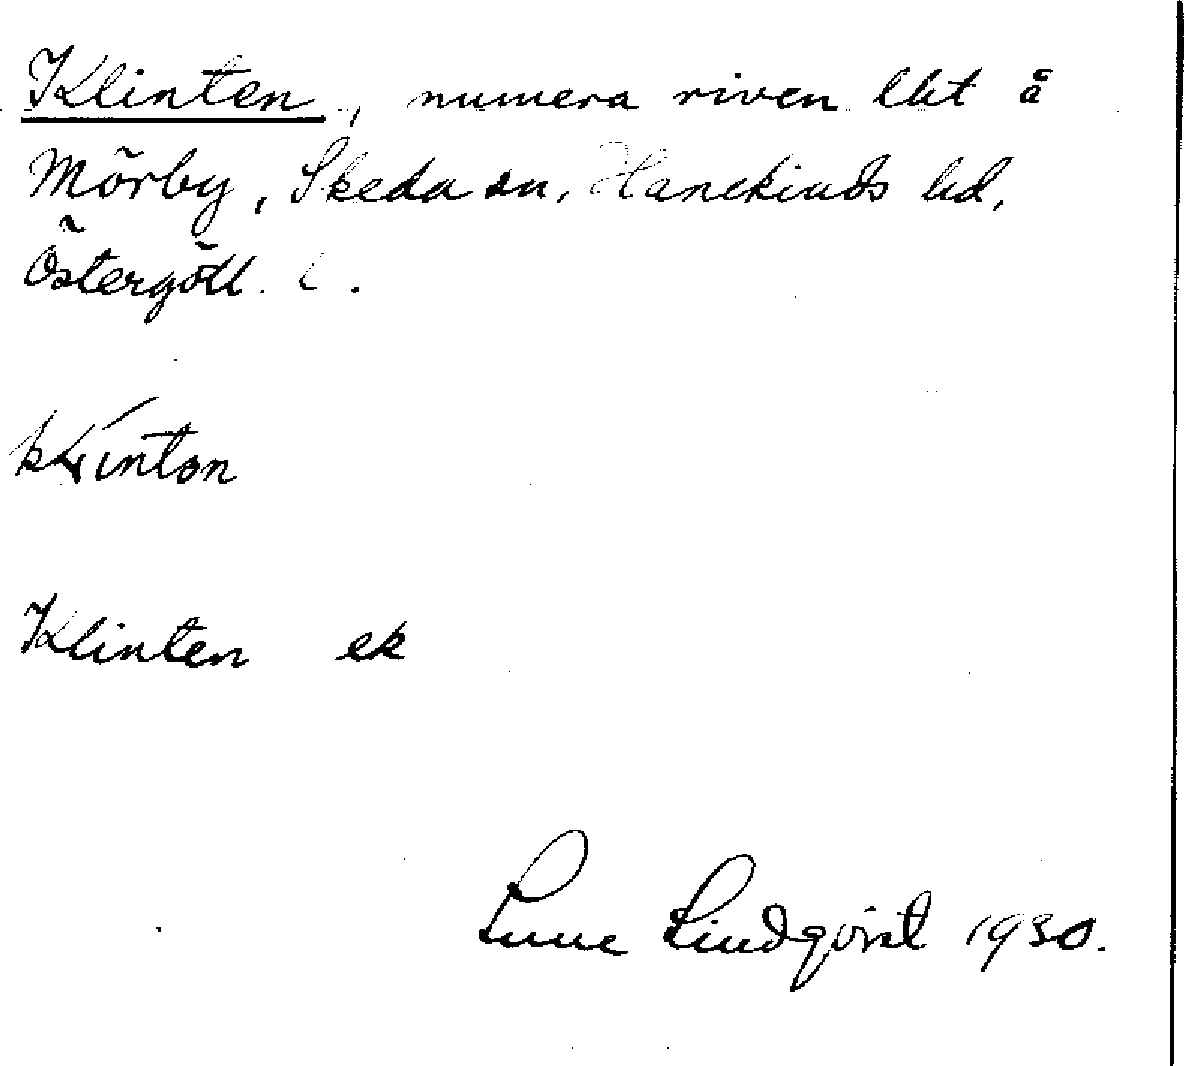 Klinten, numera riven lht å
Mörby, Skeda sn, Hanekinds hd,
Östergötl. l.
Klinten ek
Lindqvist 1930.